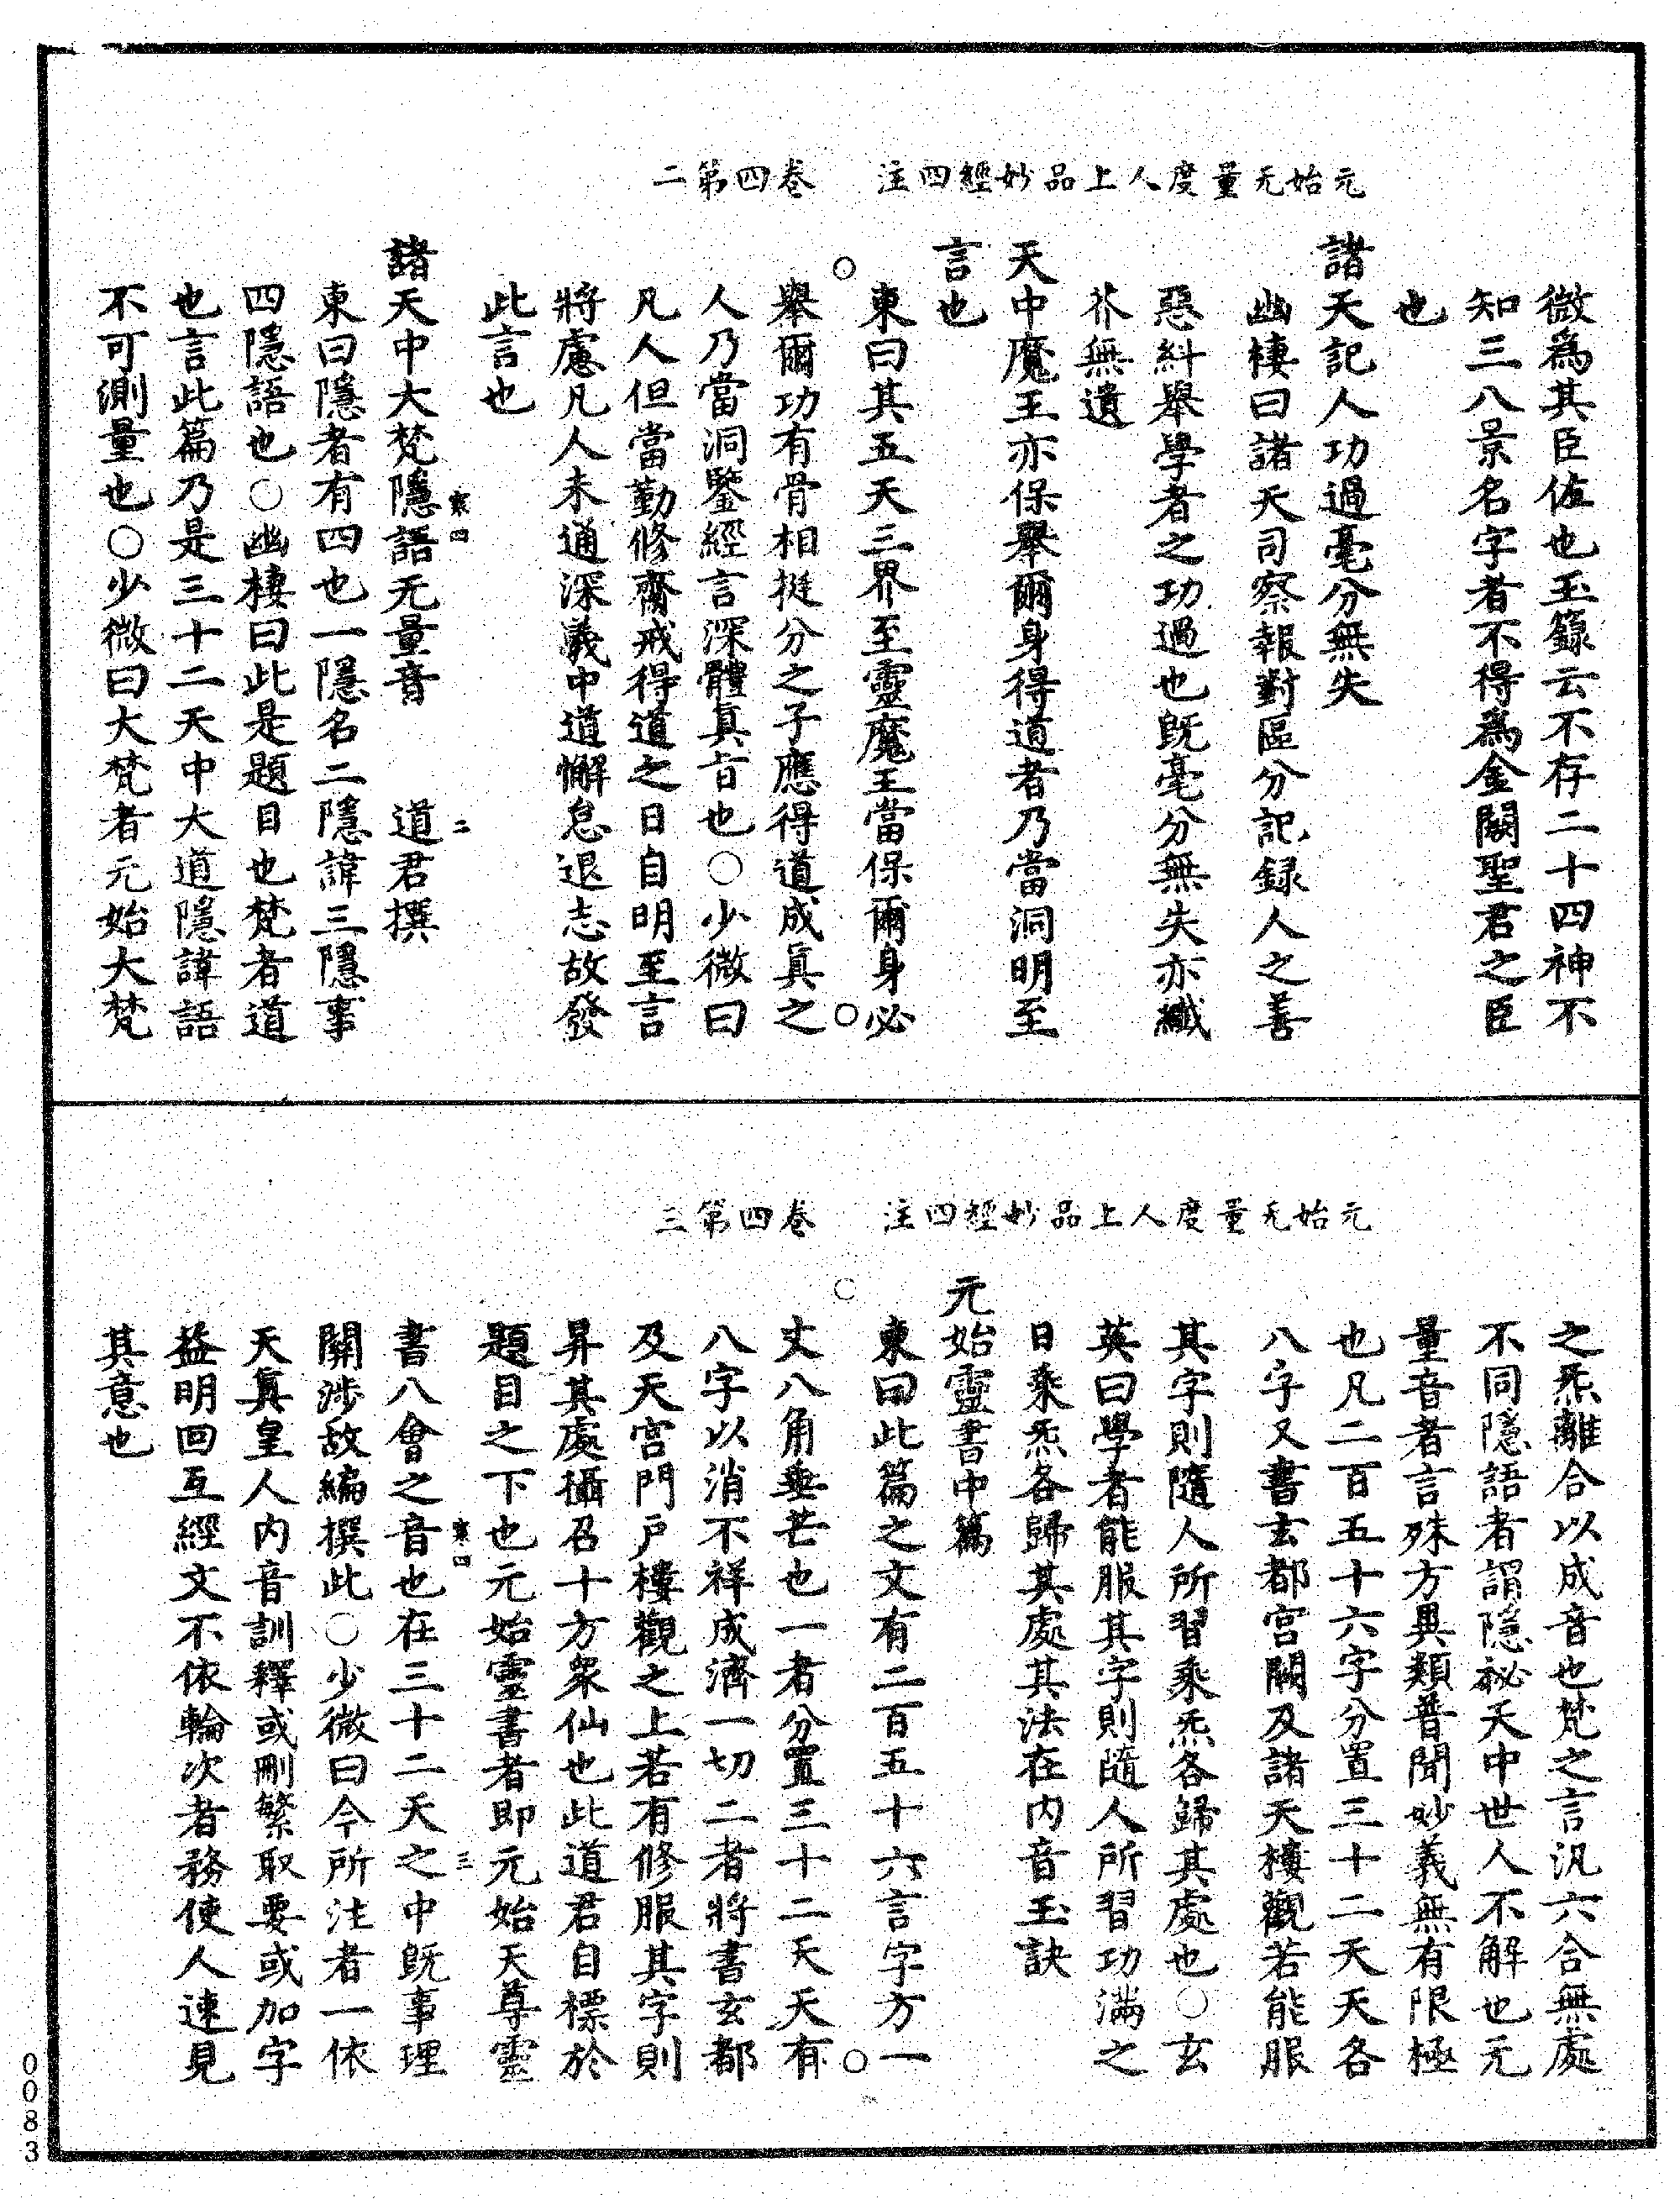 元始无量度人上品妙經四注　卷四第二
微為其臣佐也玉籙云不存二十四神不
知三八景名字者不得為金闕聖君之臣
也
諸天記人功過毫分無失
幽棲曰諸天司察報對區分記録人之善
惡糾舉學者之功過也既毫分無失亦纖
芥無遺
天中魔王亦保舉爾身得道者乃當洞明至
言也
東曰其五天三界至靈魔王當保爾身必
舉爾功有骨相挺分之子應得道成眞之
人乃當洞鑒經言深體眞旨也○少微曰
凡人但當勤修齋戒得道之日自明至言
將慮凡人未通深義中道懈怠退志故發
此言也
寒四　二
諸天中大梵隱語无量音　道君撰
東曰隱者有四也一隱名二隱諱三隱事
四隱語也○幽棲曰此是題目也梵者道
也言此篇乃是三十二天中大道隱諱語
不可測量也○少微曰大梵者元始大梵
元始无量度人上品妙經四注　卷四第三
之炁離合以成音也梵之言汎六合無處
不同隱語者謂隱祕天中世人不解也无
量音者言殊方異類普聞妙義無有限極
也凡二百五十六字分置三十二天天各
八字又書玄都宫闕及諸天樓觀若能服
其字則隨人所習乘炁各歸其處也○玄
英曰學者能服其字則隨人所習功滿之
日乘炁各歸其處其法在内音玉訣
元始靈書中篇
東曰此篇之文有二百五十六言字方一
丈八角垂芒也一者分置三十二天天有
八字以消不祥成濟一切二者將書玄都
及天宫門戶樓觀之上若有修服其字則
昇其處攝召十方衆仙也此道君自標於
題目之下也元始靈書者即元始天尊靈
寒四　三
書八會之音也在三十二天之中既事理
關涉故編撰此○少微曰今所注者一依
天眞皇人内音訓釋或刪繁取要或加字
益明回互經文不依輪次者務使人速見
其意也
0083